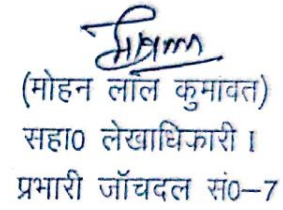 (मोहन लाल कुमावत)
सहा0 लेखाधिकारी I
प्रभारी जॉचदल सं0–7